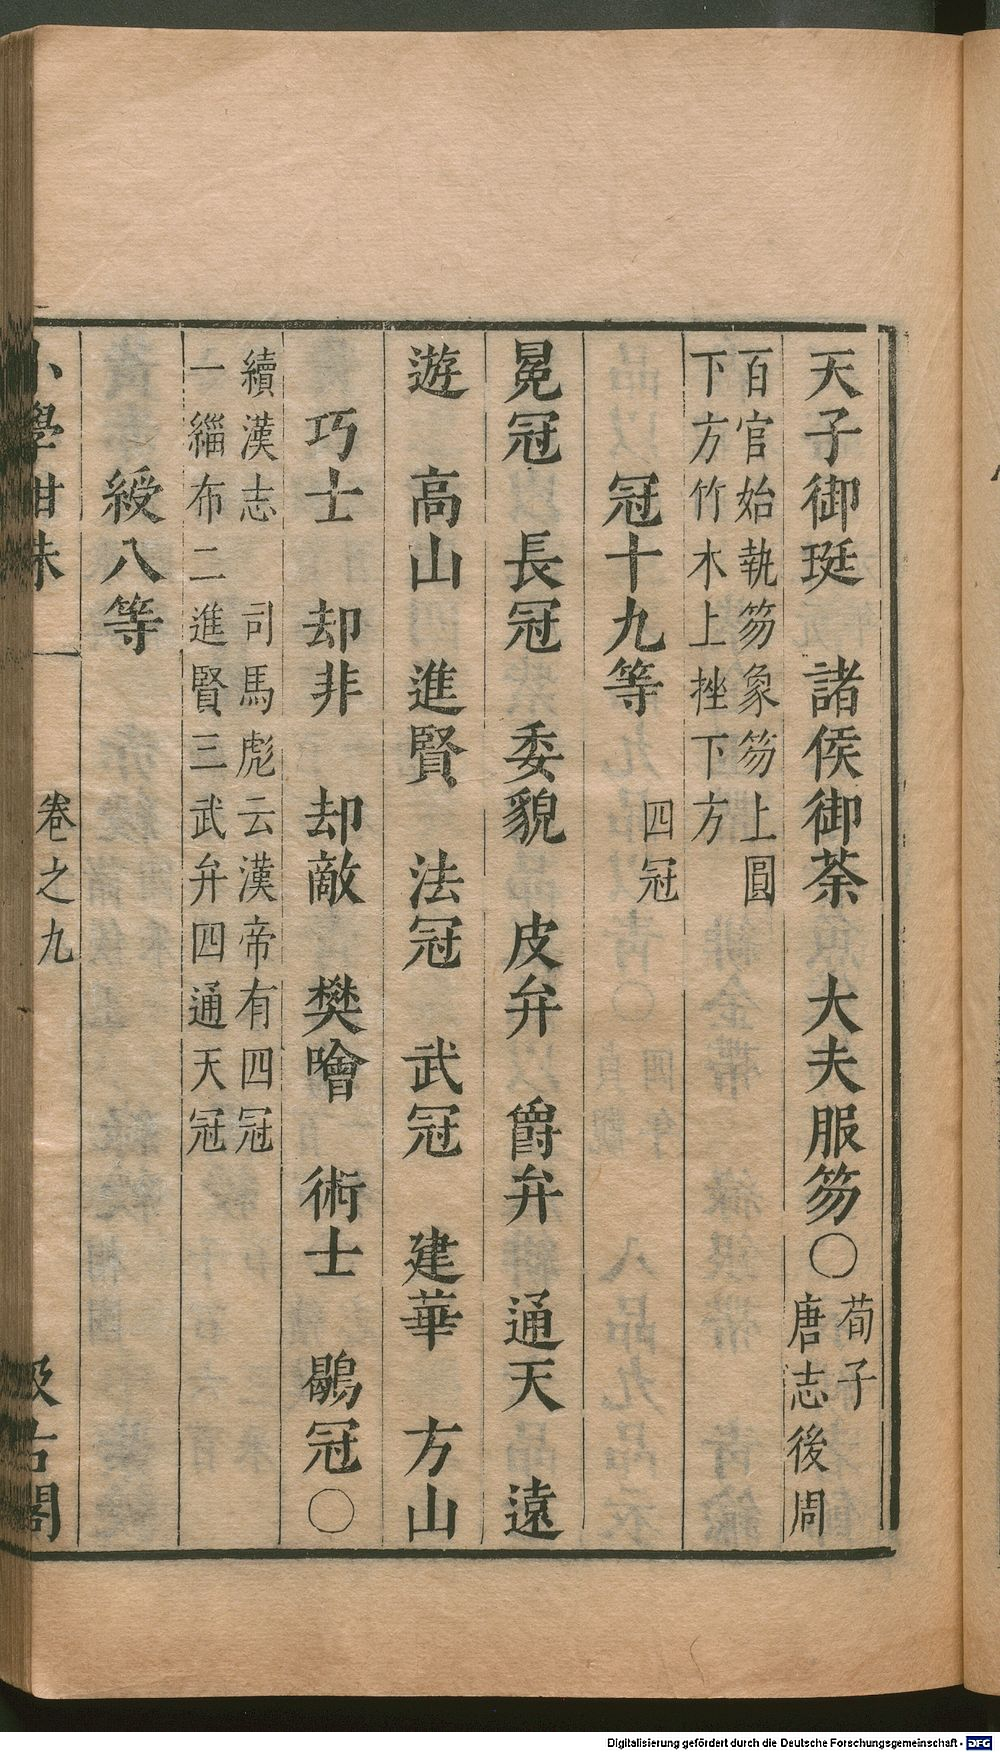 天子御珽　諸侯御荼　大夫服笏〇荀子
唐志後周
百官始執笏象笏上圓
下方竹木上挫下方
冠十九等　四冠
冕冠　長冠　委貌　皮弁　爵弁　通天　遠
遊　高山　進賢　法冠　武冠　建華　方山
巧士　却非　却敵　樊噲　術士　鶡冠〇
續漢志　司馬彪云漢帝有四冠
一緇布二進賢三武弁四通天冠
綬八等
小學紺珠　卷之九　汲古閣
Digitalisierung gefördert durch die Deutsche Forschungsgemeinschaft - DFG